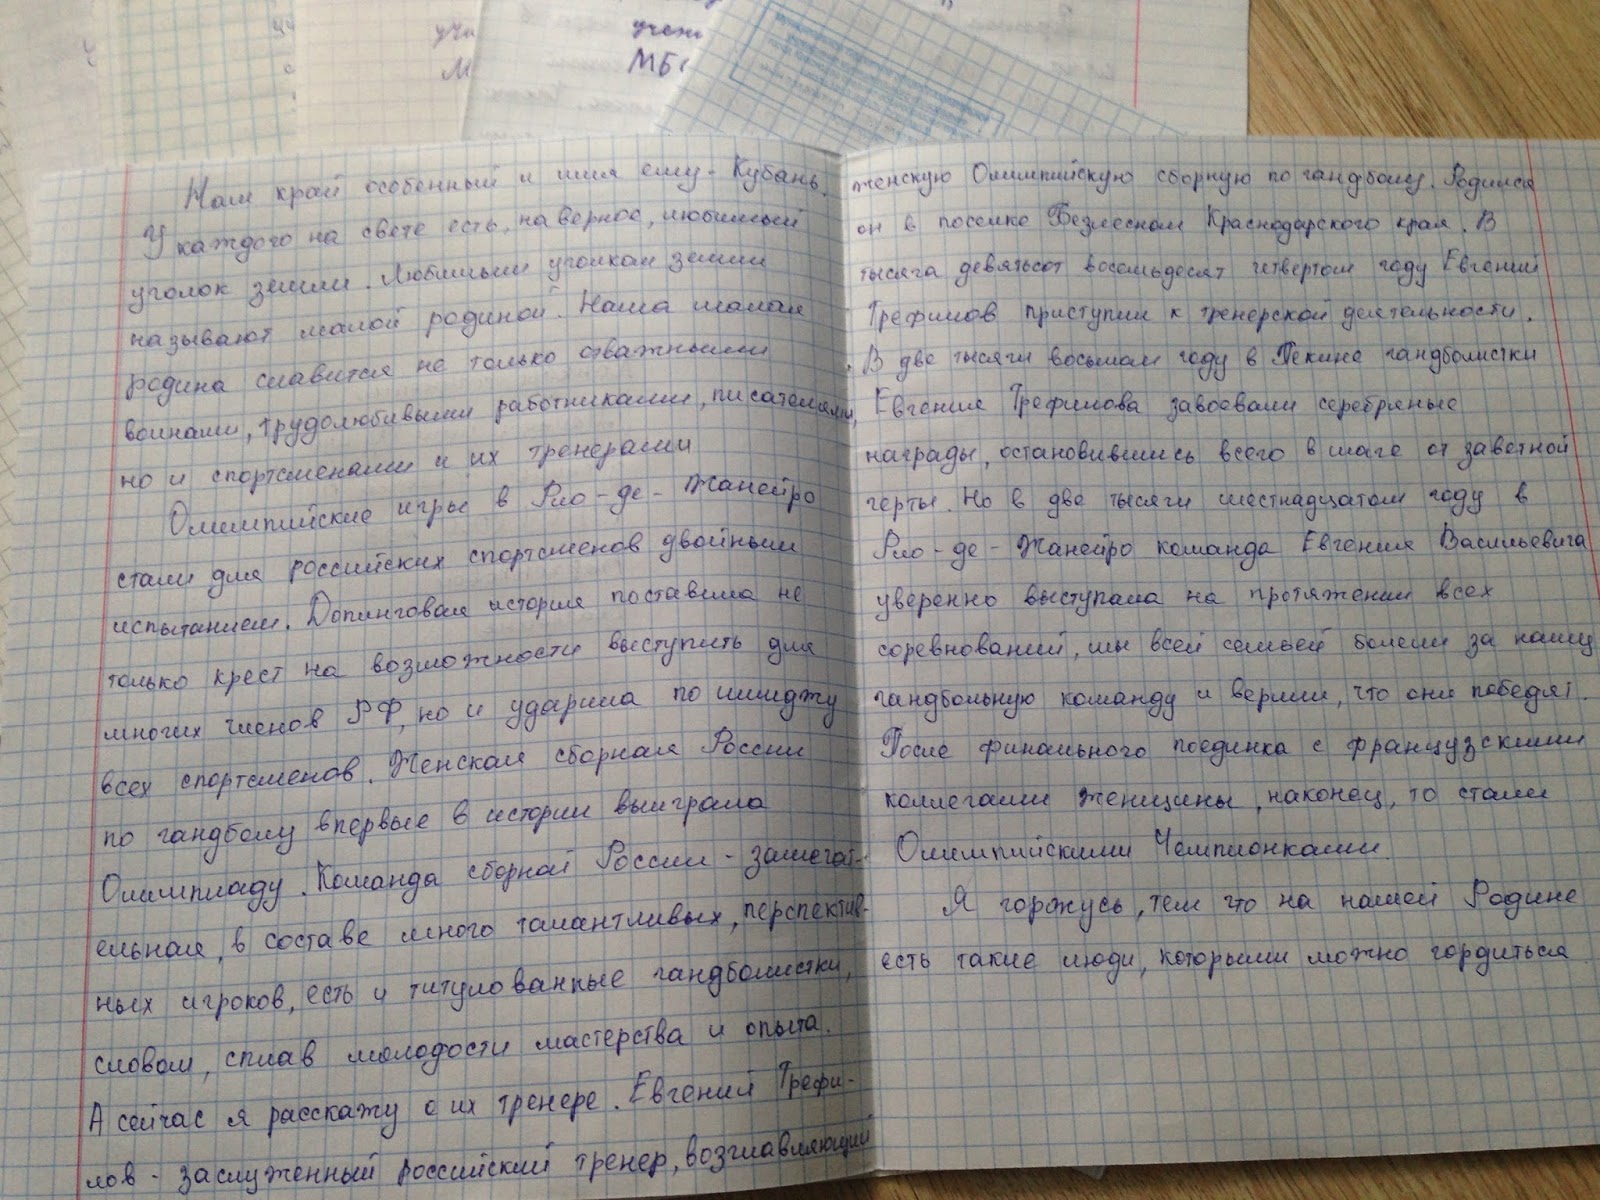 учи
М
учен
МБ
Наш край особенный и имя ему - Кубань.
У каждого на свете есть, наверное, любимый
уголок земли. Любимым уголком земли
называют малой родиной. Наша малая
родина славится не только отважными
воинами, трудолюбивыми работниками, писателями,
но и спортсменами и их тренерами
Олимпийские игры в Рио-де-Жанейро
стали для российских спортсменов двойным
испытанием. Допинговая история поставила не
только крест на возможности выступить для
многих членов РФ, но и ударила по имиджу
всех спортсменов. Женская сборная России
по гандболу впервые в истории выиграла
Олимпиаду. Команда сборной России - замечат-
ельная, в составе много талантливых, перспектив-
ных игроков, есть и титулованные гандболистки,
словом, сплав молодости мастерства и опыта.
А сейчас я расскажу о их тренере. Евгений Трефи-
лов - заслуженный российский тренер, возглавляющий
женскую Олимпийскую сборную по гандболу. Родился
он в поселке Безлесном Краснодарского края. В
тысяча девятьсот восемьдесят четвертом году Евгений
Трефилов приступил к тренерской деятельности.
В две тысячи восьмом году в Пекине гандболистки
Евгения Трефилова завоевали серебряные
награды, остановившись всего в шаге от заветной
черты. Но в две тысячи шестнадцатом году в
Рио-де-Жанейро команда Евгения Васильевича
уверенно выступала на протяжении всех
соревнований, мы всей семьей болели за нашу
гандбольную команду и верили, что они победят.
После финального поединка с французскими
коллегами женщины, наконец, то стали
Олимпийскими Чемпионками.
Я горжусь, тем что на нашей Родине
есть такие люди, которыми можно гордиться